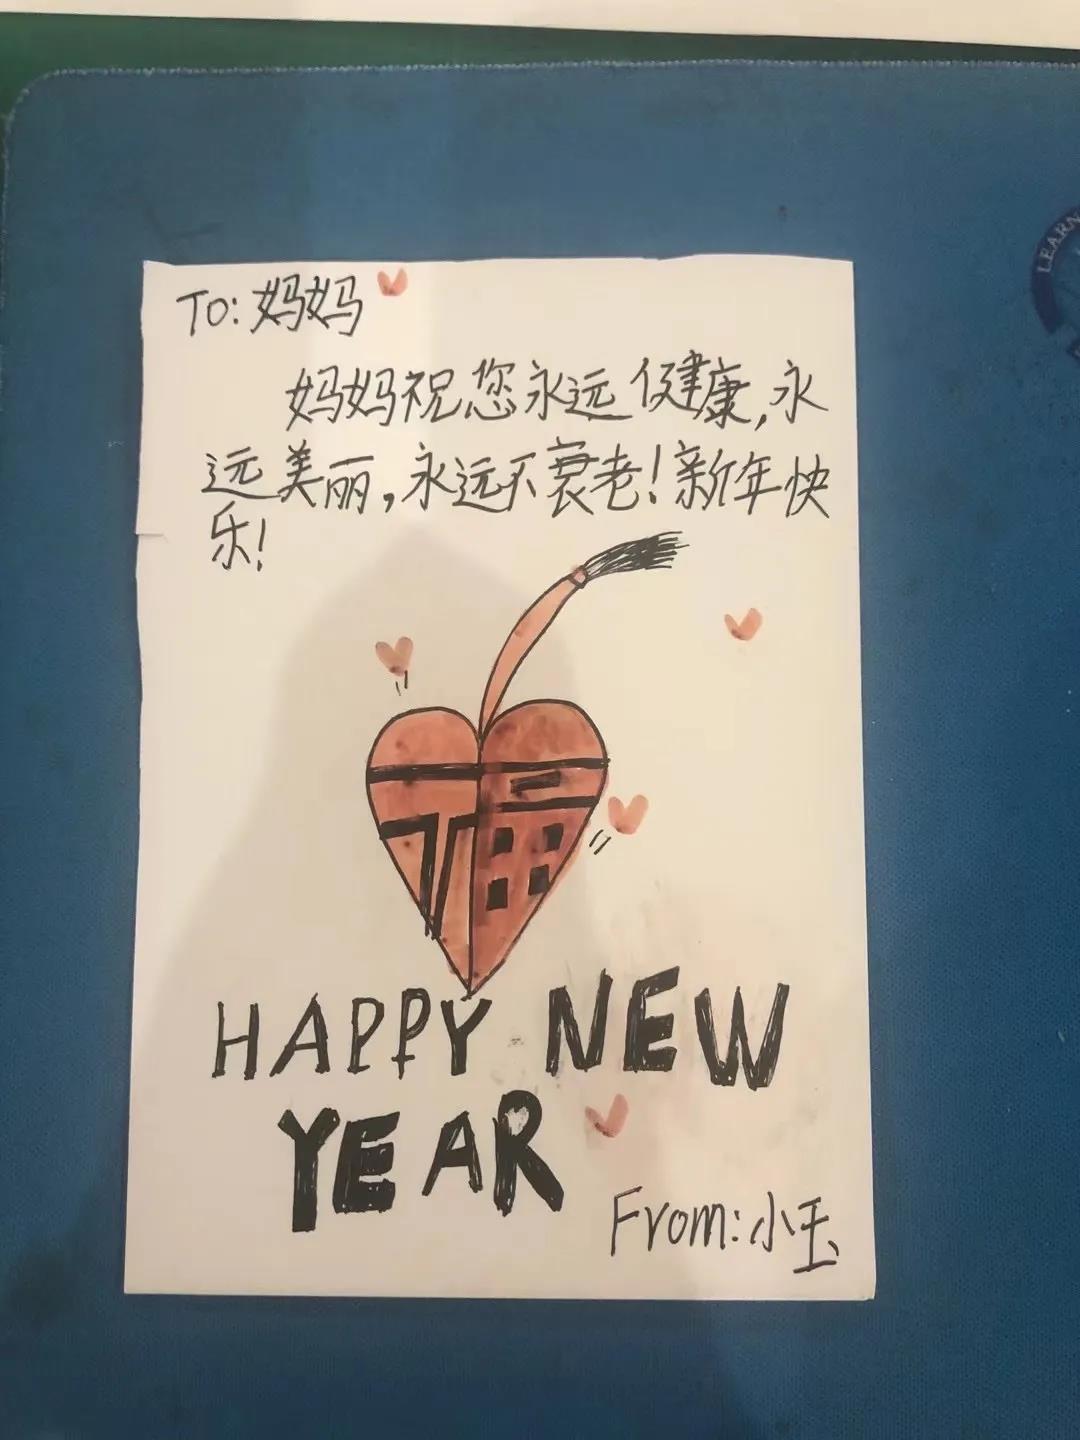 TO: 妈妈
妈妈祝您永远健康,永
远美丽,永远不衰老!新年快
乐!
福
HAPPY NEW
YEAR
From:小玉
LEARN